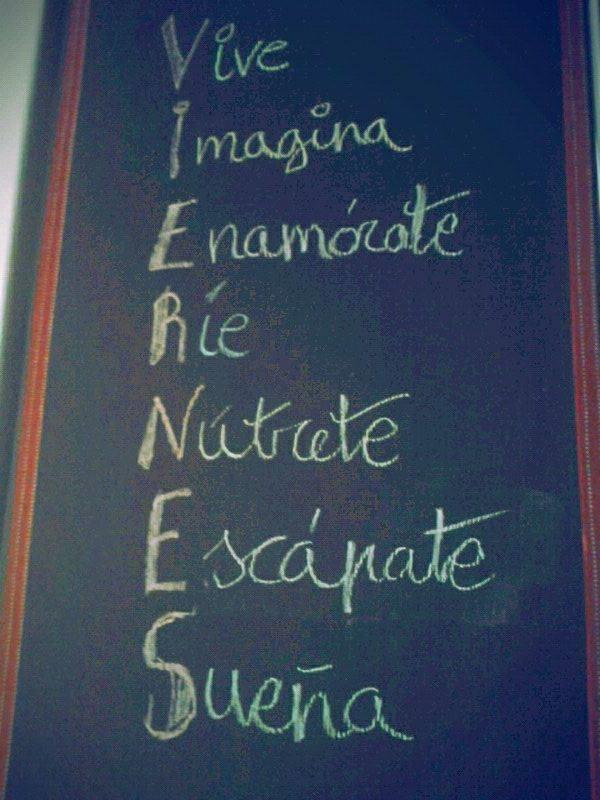 Vive
Imagina
Enamórate
Ríe
Nútrete
Escápate
Sueña